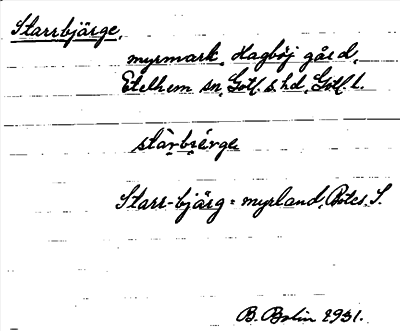 Starrbjärge,
myrmark, Hagböj gård,
Etelhem sn, Gotl. s. hd, Gotl. l.
stàrbiérge
Starr-bjärg = myrland, Botes. S.
B. Bolin 1931.